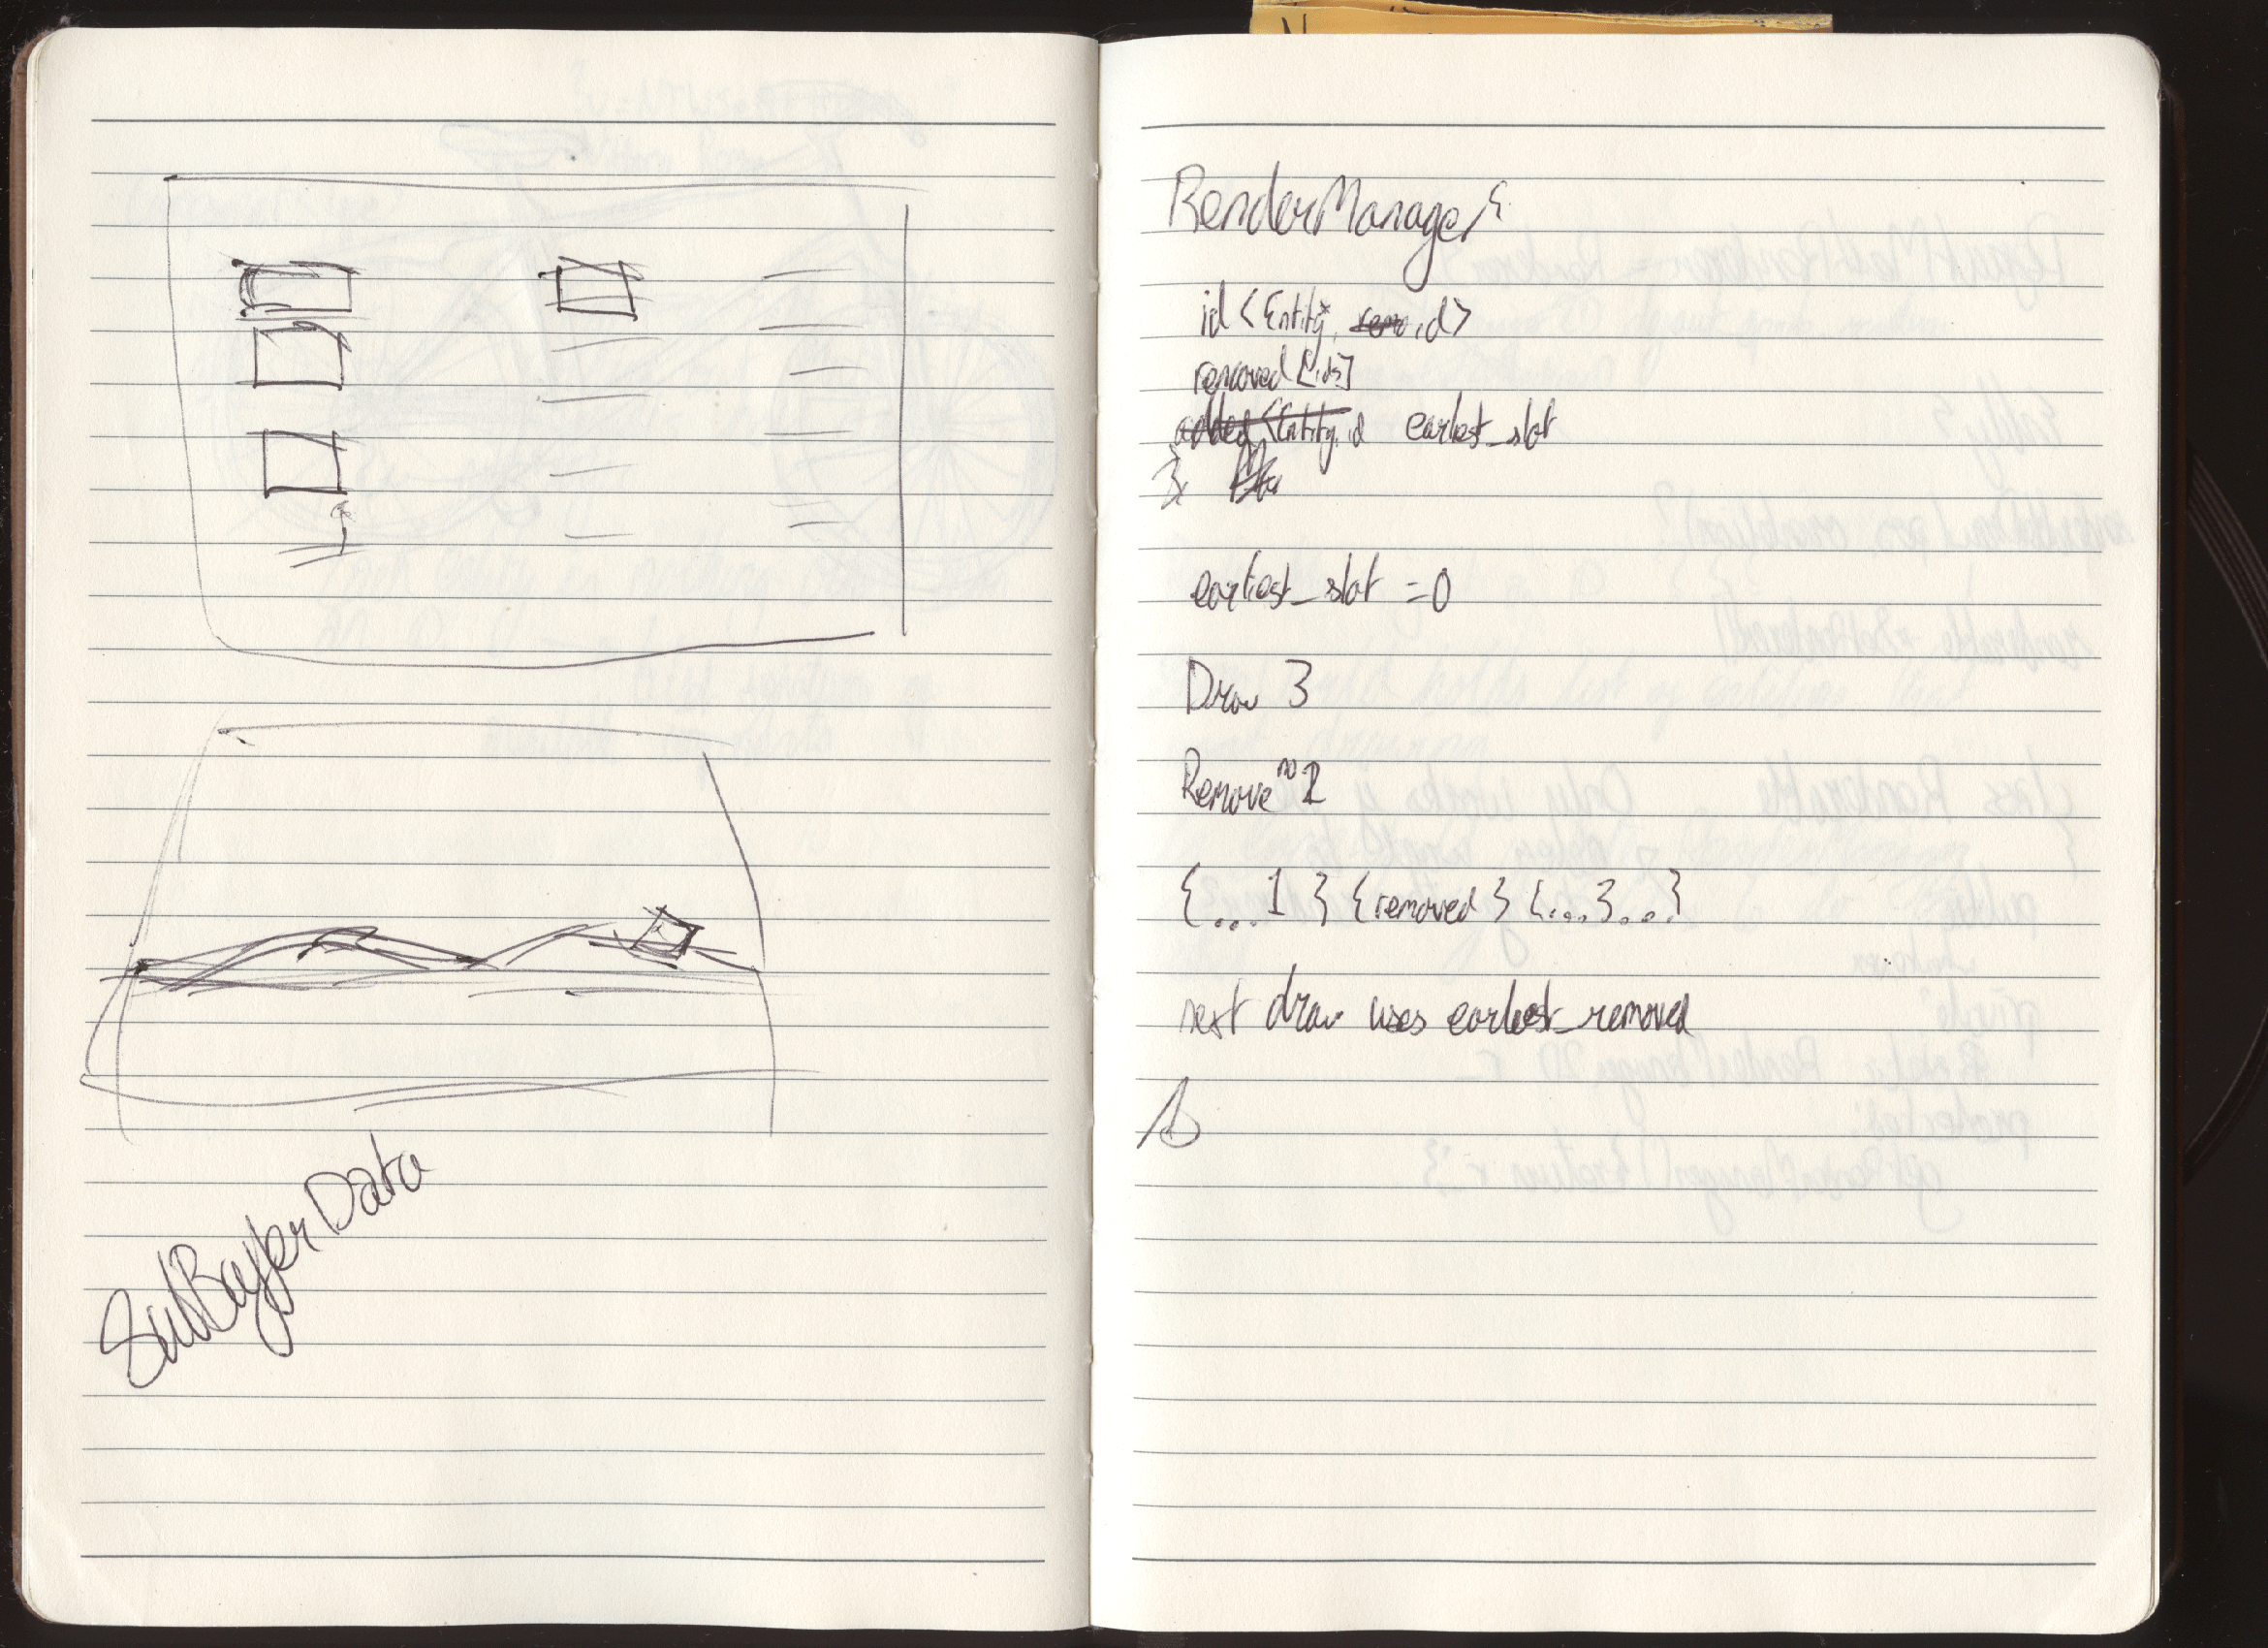 SubBufferData
RenderManager{
id <Entity*, id>
removed [ids]
added <Entity, id earliest_slot
}
earliest_slot = 0
Draw 3
Remove no 2
{... 1 } {removed } {...3...}
next draw uses earliest_removed